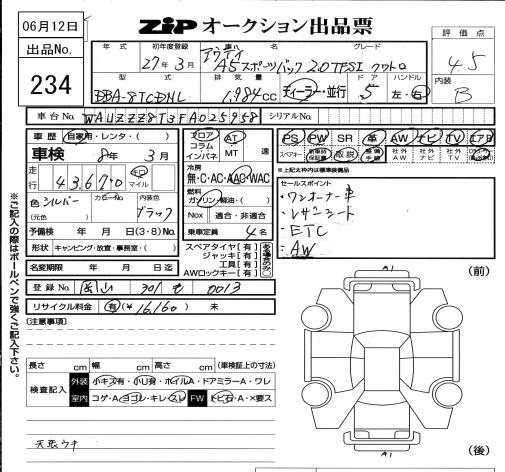 06月12日
ZiP オークション出品票
出品No.
234
年式 初年度登録 車名 グレード
27年3月 アウディ A5スポーツバック 2.0TFSI クワトロ
評価点
4.5
内装
B
型式 排気量 ドア ハンドル
DBA-8TCDNL 1,984cc ディーラー・並行 5 左・右
車台No. WAUZZZ8T3FA025958 シリアルNo.
車歴 自家用・レンタ・( ) フロア コラム インパネ AT MT 速
PS PW SR 革 AW ナビ TV エアB
車検 8年 3月
スペアキー 新車時保証書 取説 整備手帳 社外AW 社外ナビ 社外TV
※上記太枠内は標準装備品
走行 43,670 km マイル
冷房
無・C・AC・AAC・WAC
色 シルバー カラーNo. 内装色 ブラック
(元色)
燃料
ガソリン・軽油・( )
Nox 適合・非適合
セールスポイント
・ワンオーナー車
・レザーシート
・ETC
・AW
予備検 年 月 日(3・8)No.
乗車定員 4名
形状 キャンピング・放置・事務室・( )
スペアタイヤ[有]
ジャッキ[有]
工具[有]
AWロックキー[有]
名変期限 年 月 日迄
登録No. 岡山 301 も 0013
リサイクル料金 有(¥16,160) 未
(注意事項)
長さ cm 幅 cm 高さ cm (車検証上の寸法)
検査記入 外装 小キズ有・小U有・ホイルA・ドアミラーA・ワレ
室内 コゲ・A・ヨゴレ・キレ・スレ FW トビ石・A・×要ス
天張ウキ
※ご記入の際はボールペンで強くご記入下さい。
(前)
A1
A1
(後)